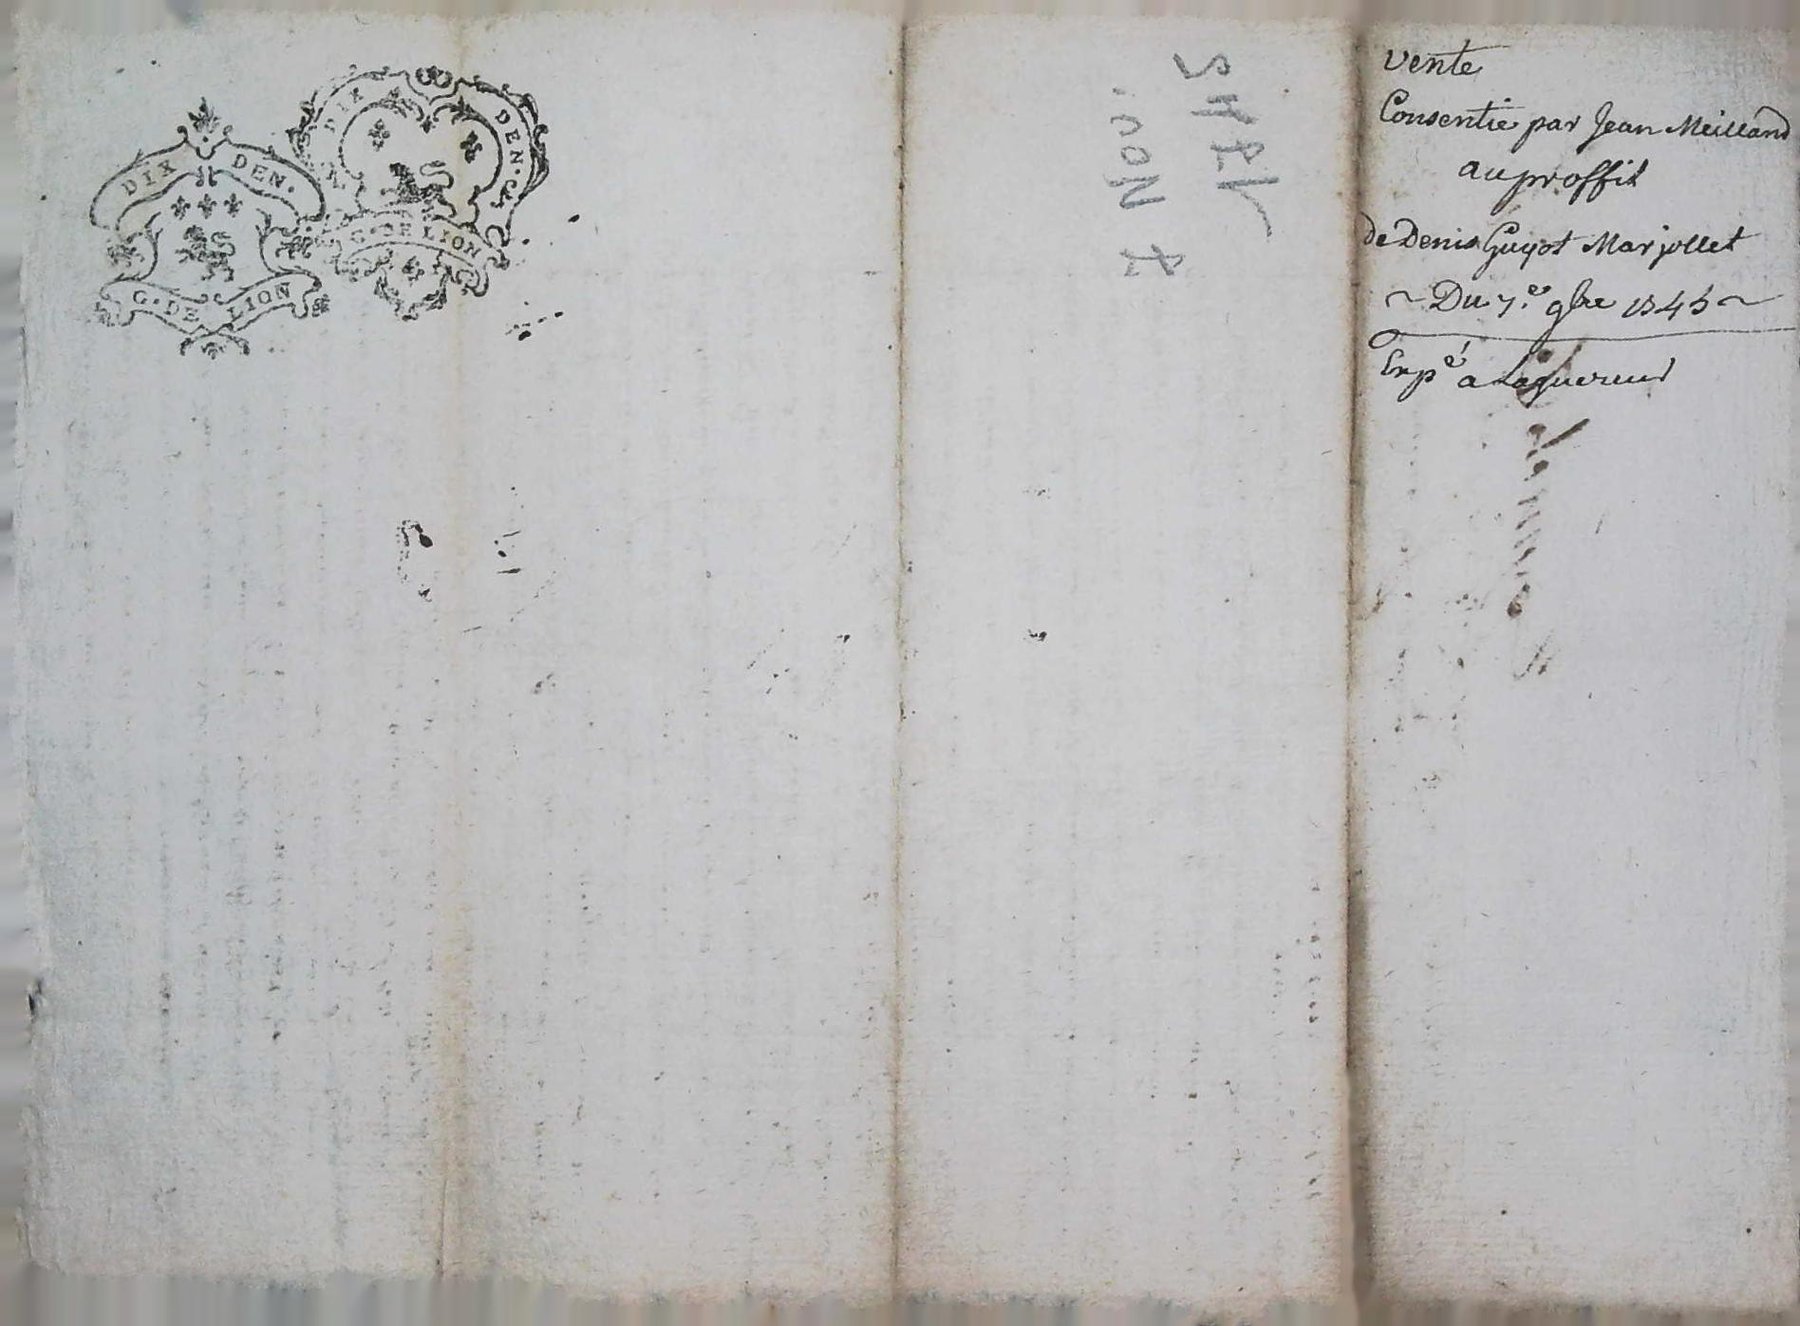 DIX DEN.
G. DE LION
DIX DEN.
G. DE LION
7 Nov.
1745
vente
Consentie par Jean Meilland
au proffit
de Denis Guyot Marjollet
~ Du 7.e 9bre 1745 ~
Expé a Laquereur